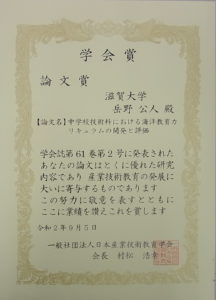 学会賞
論文賞
滋賀大学
岳野公人 殿
【論文名】中学校技術科における海洋教育カ
リキュラムの開発と評価
学会誌第61巻第2号に発表された
あなたの論文はとくに優れた研究
内容であり産業技術教育の発展に
大いに寄与するものであります
この努力に敬意を表すとともに
ここに業績を讃えこれを賞します
令和2年9月5日
一般社団法人日本産業技術教育学会
会長 村松 浩幸